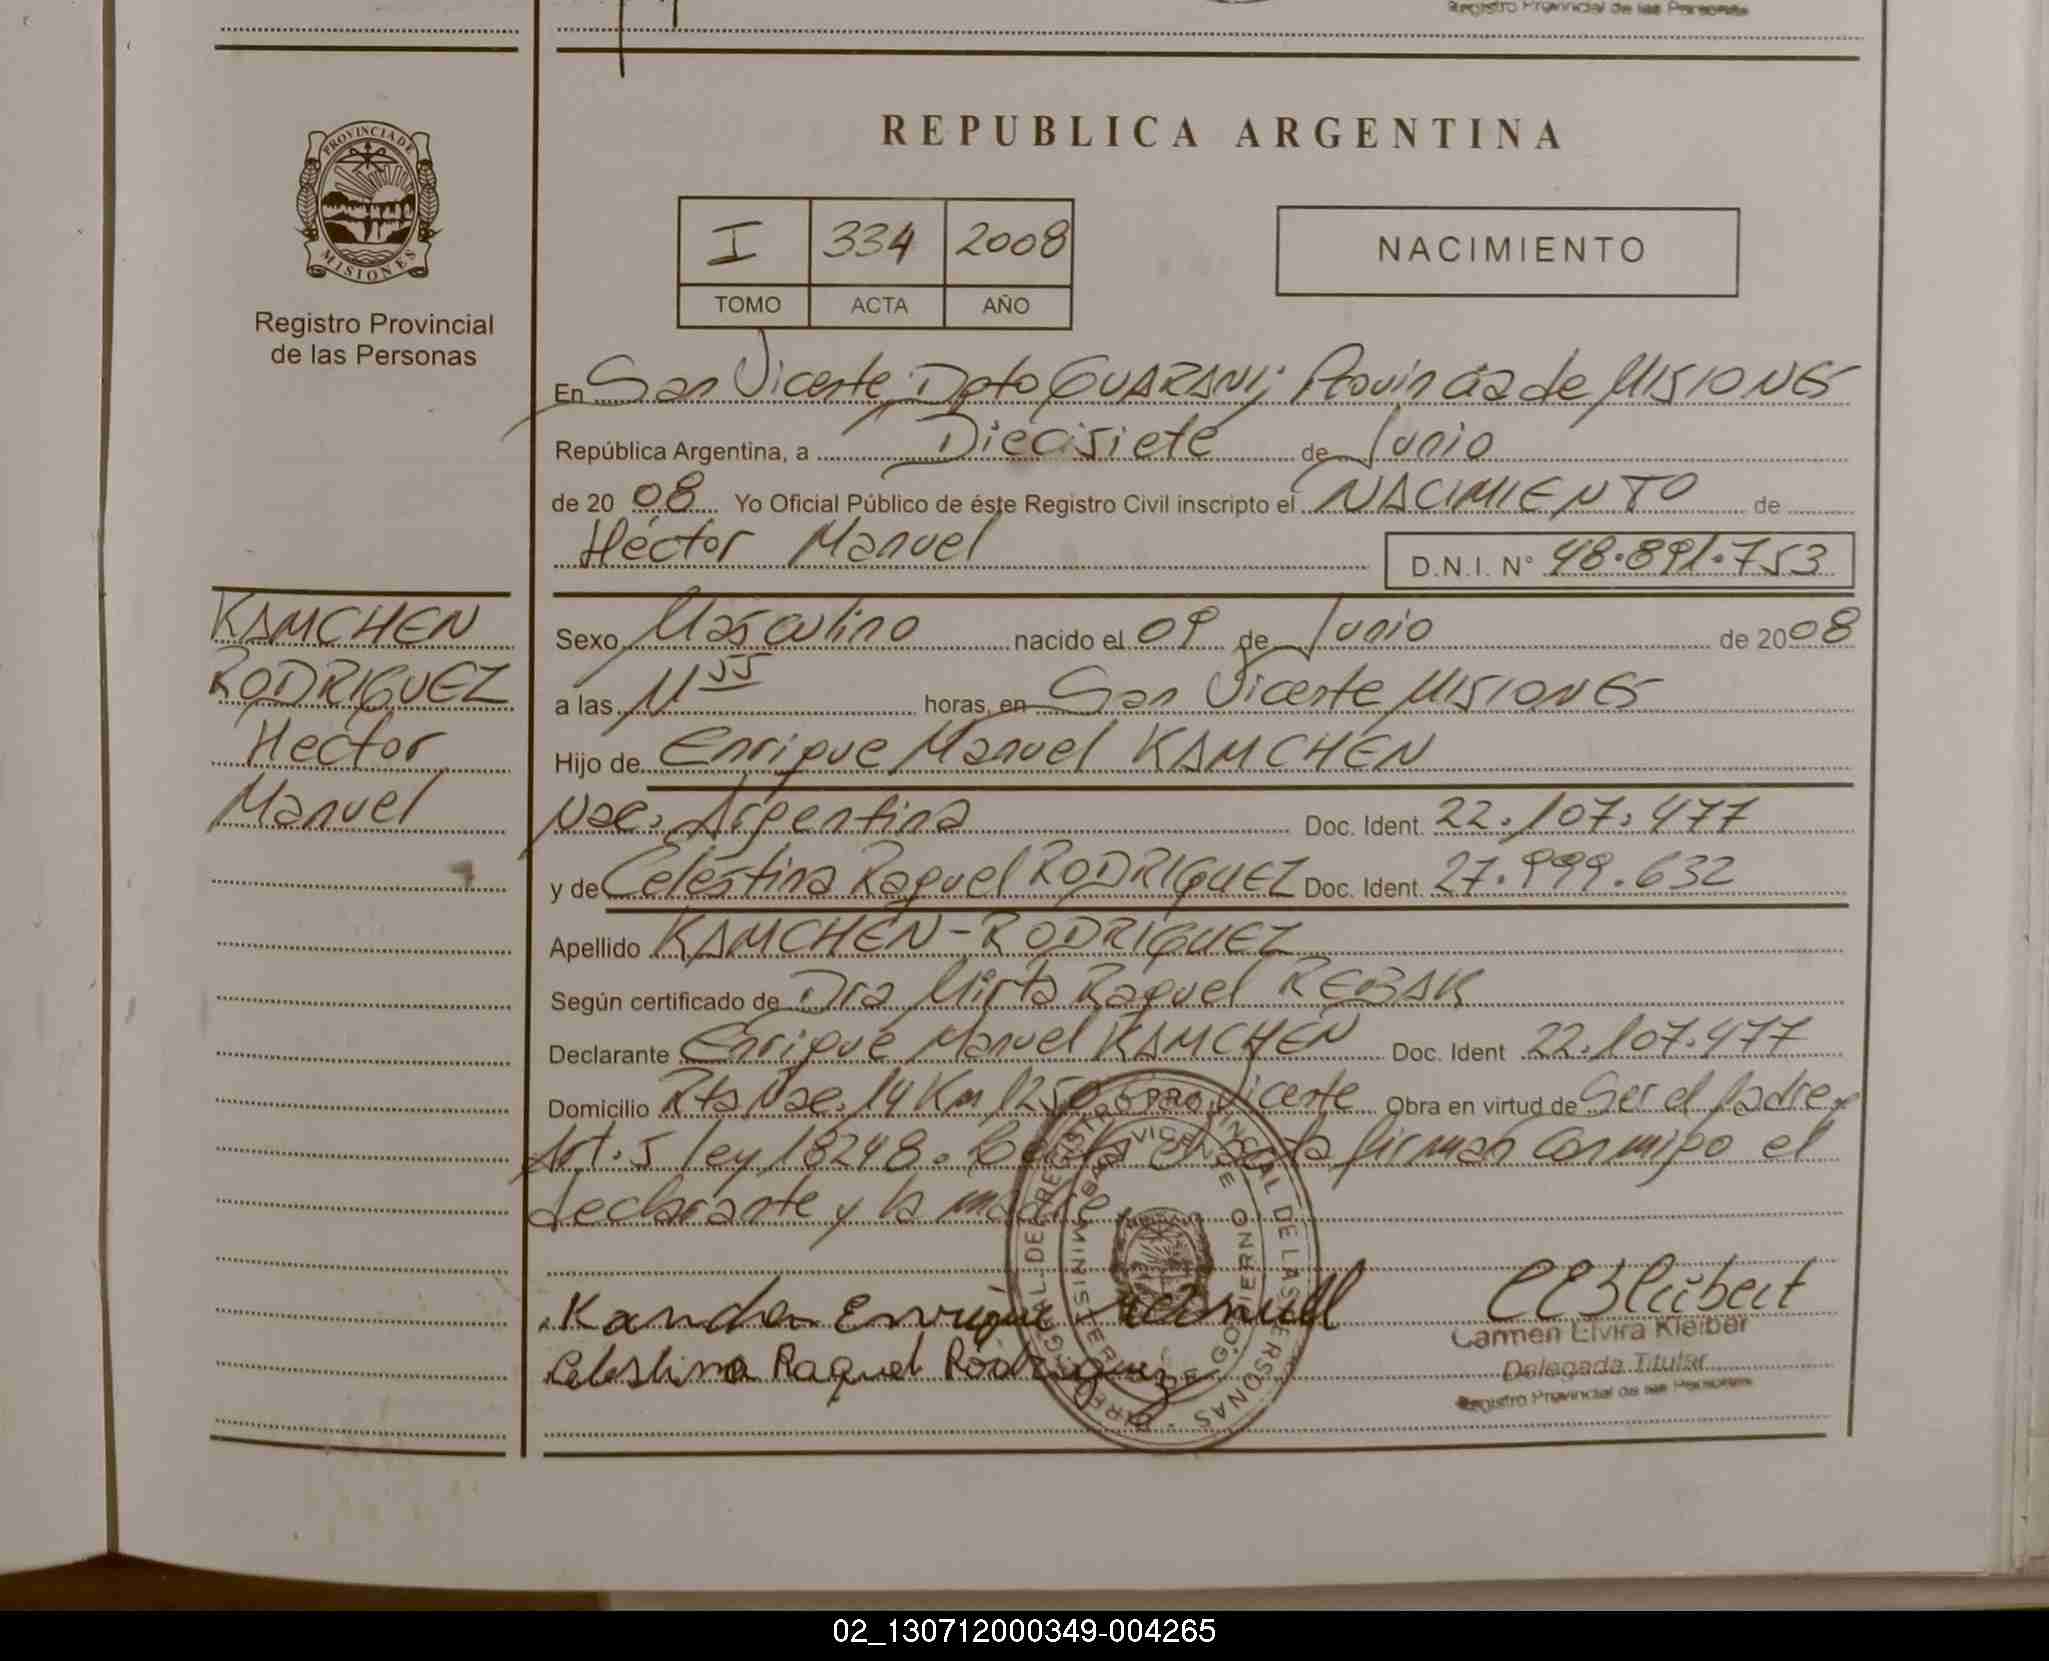 Registro Provincial de las Personas
REPUBLICA ARGENTINA
PROVINCIA DE
MISIONES
Registro Provincial
de las Personas
I 334 2008
TOMO ACTA AÑO
NACIMIENTO
En San Vicente Dpto GUARANI; Provincia de MISIONES
República Argentina, a Diecisiete de Junio
de 20 08 Yo Oficial Público de éste Registro Civil inscripto el NACIMIENTO de
Héctor Manuel D.N.I. N° 48.891.753
KAMCHEN
RODRIGUEZ
Hector
Manuel
Sexo Masculino nacido el 09 de Junio de 2008
a las 11 55 horas, en San Vicente MISIONES
Hijo de Enrique Manuel KAMCHEN
Nac. Argentina Doc. Ident. 22.107.477
y de Celestina Raquel RODRIGUEZ Doc. Ident. 27.999.632
Apellido KAMCHEN-RODRIGUEZ
Según certificado de Dra Mirta Raquel REBAK
Declarante Enrique Manuel KAMCHEN Doc. Ident 22.107.477
Domicilio Rta Nac. 14 Km 1250 Vicente Obra en virtud de Ser el padre
Art. 5 ley 18248. el acta firman conmigo el
declarante y la madre
Enrique
Celestina Raquel Rodriguez
Carmen Elvira Kleiber
Delegada Titular
Registro Provincial de las Personas
02_130712000349-004265